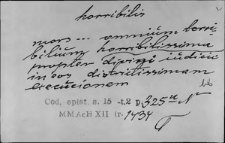 horribilis
mors — omnium horri-
bilium horribilissima
propter divini iudicii
in eos districtissimam
execucionem
Cod. epist. s. 15 t.2 p 325 a N
MMAeH XII tr. 1434